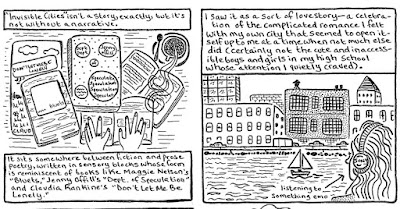 "Invisible Cities" isn't a story, exactly, but it's
not without a narrative.
DON'T LET ME BE
LONELY
Bluets
Dept.
of
Speculation
Speculation
Speculation
It sits somewhere between fiction and prose
poetry, written in sensory blocks whose form
is reminiscent of books like Maggie Nelson's
"Bluets," Jenny Offill's "Dept. of Speculation"
and Claudia Rankine's "Don't Let Me Be
Lonely."
I saw it as a sort of love story—a celebra-
tion of the complicated romance I felt
with my own city that seemed to open it-
self up to me at a time when not much else
did (certainly not the cute and inaccess-
ible boys and girls in my high school
whose attention I quietly craved).
listening to
something emo